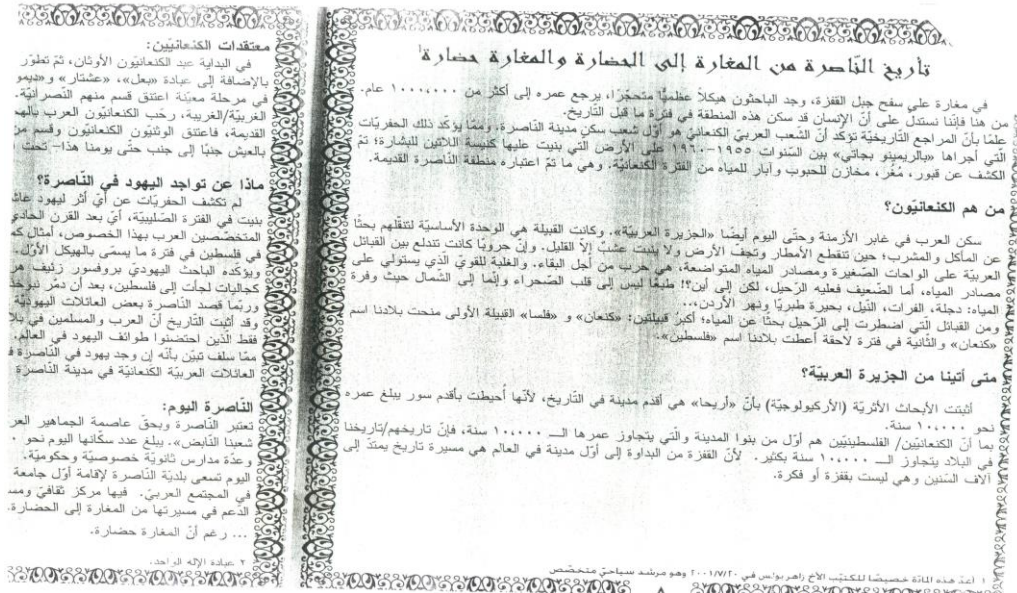 تأريخ النّاصرة من المغارة إلى الحضارة والمغارة حضارة¹
في مغارة على سفح جبل القفزة، وجد الباحثون هيكلاً عظميًّا متحجّرا، يرجع عمره إلى أكثر من ١٠٠٠،٠٠٠ عام.
من هنا فإنّنا نستدل على أنّ الإنسان قد سكن هذه المنطقة في فترة ما قبل التّاريخ.
علمًا بأنّ المراجع التّاريخيّة تؤكّد أنّ الشّعب العربيّ الكنعانيّ هو أوّل شعب سكن مدينة النّاصرة، وممّا يؤكّد ذلك الحفريّات
الّتي أجراها «بالريمينو بجاتي» بين السّنوات ١٩٥٥-١٩٦٠ على الأرض الّتي بنيت عليها كنيسة اللاتين للبشارة؛ تمّ
الكشف عن قبور، مُغر، مخازن للحبوب وآبار للمياه من الفترة الكنعانيّة. وهي ما تمّ اعتباره منطقة النّاصرة القديمة.
من هم الكنعانيّون؟
سكن العرب في غابر الأزمنة وحتّى اليوم أيضًا «الجزيرة العربيّة». وكانت القبيلة هي الوحدة الأساسيّة لتنقّلهم بحثًا
عن المأكل والمشرب؛ حين تنقطع الأمطار وتجف الأرض ولا ينبت عشبٌ إلاّ القليل. وإنّ حروبًا كانت تندلع بين القبائل
العربيّة على الواحات الصّغيرة ومصادر المياه المتواضعة، هي حرب من أجل البقاء. والغلبة للقويّ الذي يستولي على
مصادر المياه، أما الضّعيف فعليه الرّحيل، لكن إلى أين؟! طبعًا ليس إلى قلب الصّحراء وإنّما إلى الشّمال حيث وفرة
المياه: دجلة، الفرات، النّيل، بحيرة طبريّا ونهر الأردن،...
ومن القبائل الّتي اضطرت إلى الرّحيل بحثًا عن المياه؛ أكبرُ قبيلتين: «كنعان» و «فلسا» القبيلة الأولى منحت بلادنا اسم
«كنعان» والثّانية في فترة لاحقة أعطت بلادنا اسم «فلسطين».
متى أتينا من الجزيرة العربيّة؟
أثبتت الأبحاث الأثريّة (الأركيولوجيّة) بأنّ «أريحا» هي أقدم مدينة في التّاريخ، لأنّها أُحيطت بأقدم سور يبلغ عمره
نحو ١٠،٠٠٠ سنة.
بما أنّ الكنعانيّين/ الفلسطينيّين هم أوّل من بنوا المدينة والّتي يتجاوز عمرها الــ ١٠،٠٠٠ سنة، فإنّ تاريخهم/تاريخنا
في البلاد يتجاوز الــ ١٠،٠٠٠ سنة بكثير. لأنّ القفزة من البداوة إلى أوّل مدينة في العالم هي مسيرة تاريخ يمتدّ إلى
آلاف السّنين وهي ليست بقفزة أو فكرة.
١ أعدّ هذه المادّة خصيصًا للكتيّب الأخ زاهر بولس في ٢٠٠١/٧/٢٠ وهو مرشد سياحيّ متخصّص
٨
معتقدات الكنعانيّين:
في البداية عبد الكنعانيّون الأوثان، ثمّ تطوّر
بالإضافة إلى عبادة «بعل»، «عشتار» و«ديمو
في مرحلة معيّنة اعتنق قسم منهم النّصرانيّة.
الغربيّة/الغريبة، رحّب الكنعانيّون العرب بالهم
القديمة، فاعتنق الوثنيّون الكنعانيّون وقسم من
بالعيش جنبًا إلى جنب حتّى يومنا هذا– تحت
ماذا عن تواجد اليهود في النّاصرة؟
لم تكشف الحفريّات عن أيّ أثر ليهود عاش
بنيت في الفترة الصّليبيّة، أيّ بعد القرن الحادي
المتخصّصين العرب بهذا الخصوص، أمثال كم
في فلسطين في فترة ما يسمّى بالهيكل الأوّل.
ويؤكده الباحث اليهوديّ بروفسور زئيف هر
كجاليات لجأت إلى فلسطين، بعد أن دمّر نبوخذ
وربّما قصد النّاصرة بعض العائلات اليهوديّة
وقد أثبت التّاريخ أنّ العرب والمسلمين في بلا
فقط الّذين احتضنوا طوائف اليهود في العالم.
ممّا سلف تبيّن بأنّه إن وجد يهود في النّاصرة ف
العائلات العربيّة الكنعانيّة في مدينة النّاصرة
النّاصرة اليوم:
تعتبر النّاصرة وبحقّ عاصمة الجماهير العر
شعبنا النّابض». يبلغ عدد سكّانها اليوم نحو ٠
وعدّة مدارس ثانويّة خصوصيّة وحكوميّة.
اليوم تسعى بلديّة النّاصرة لإقامة أوّل جامعة
في المجتمع العربيّ. فيها مركز ثقافيّ ومس
الدّعم في مسيرتها من المغارة إلى الحضارة.
... رغم أنّ المغارة حضارة.
٢ عبادة الإله الواحد.